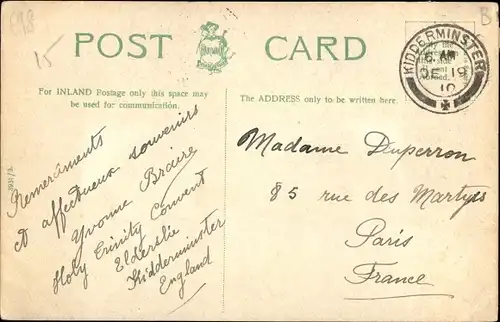 C98
15
B
POST CARD
For INLAND Postage only this space may
be used for communication.
The ADDRESS only to be written here.
KIDDERMINSTER
6 AM
DE 19
10
Remerciments
et affectueux souvenirs
Yvonne Braire
Holy Trinity Convent
Elderslie
Kidderminster
England
Madame Duperron
85 rue des Martyrs
Paris
France